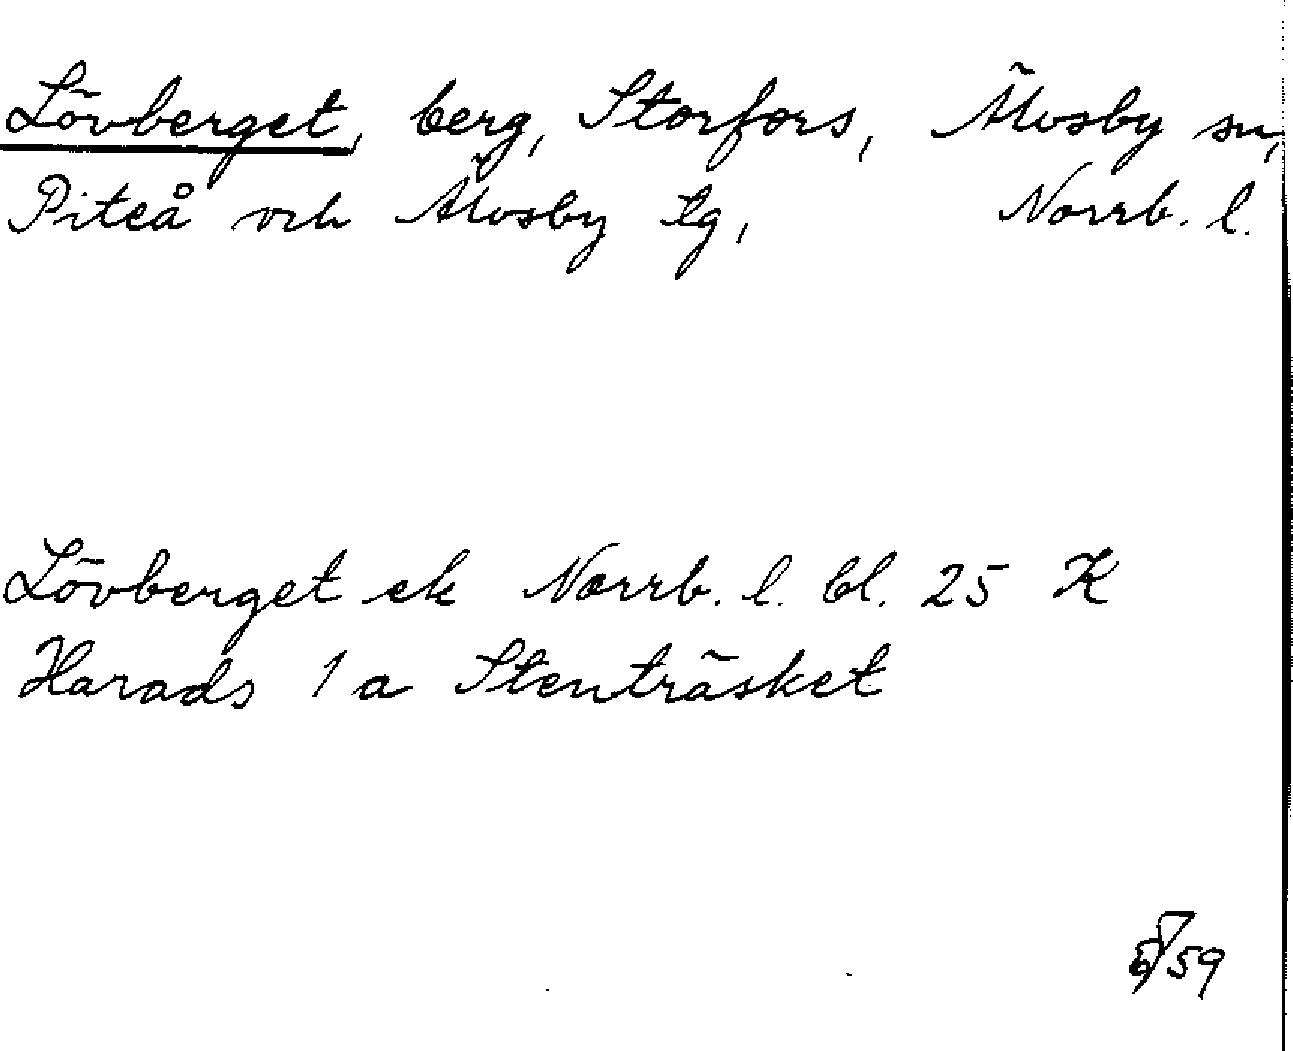 Lövberget, berg, Storfors, Älvsby sn,
Piteå och Älvsby tg, Norrb. l.
Lövberget ek Norrb. l. bl. 25 K
Harads 1 a Stenträsket
59